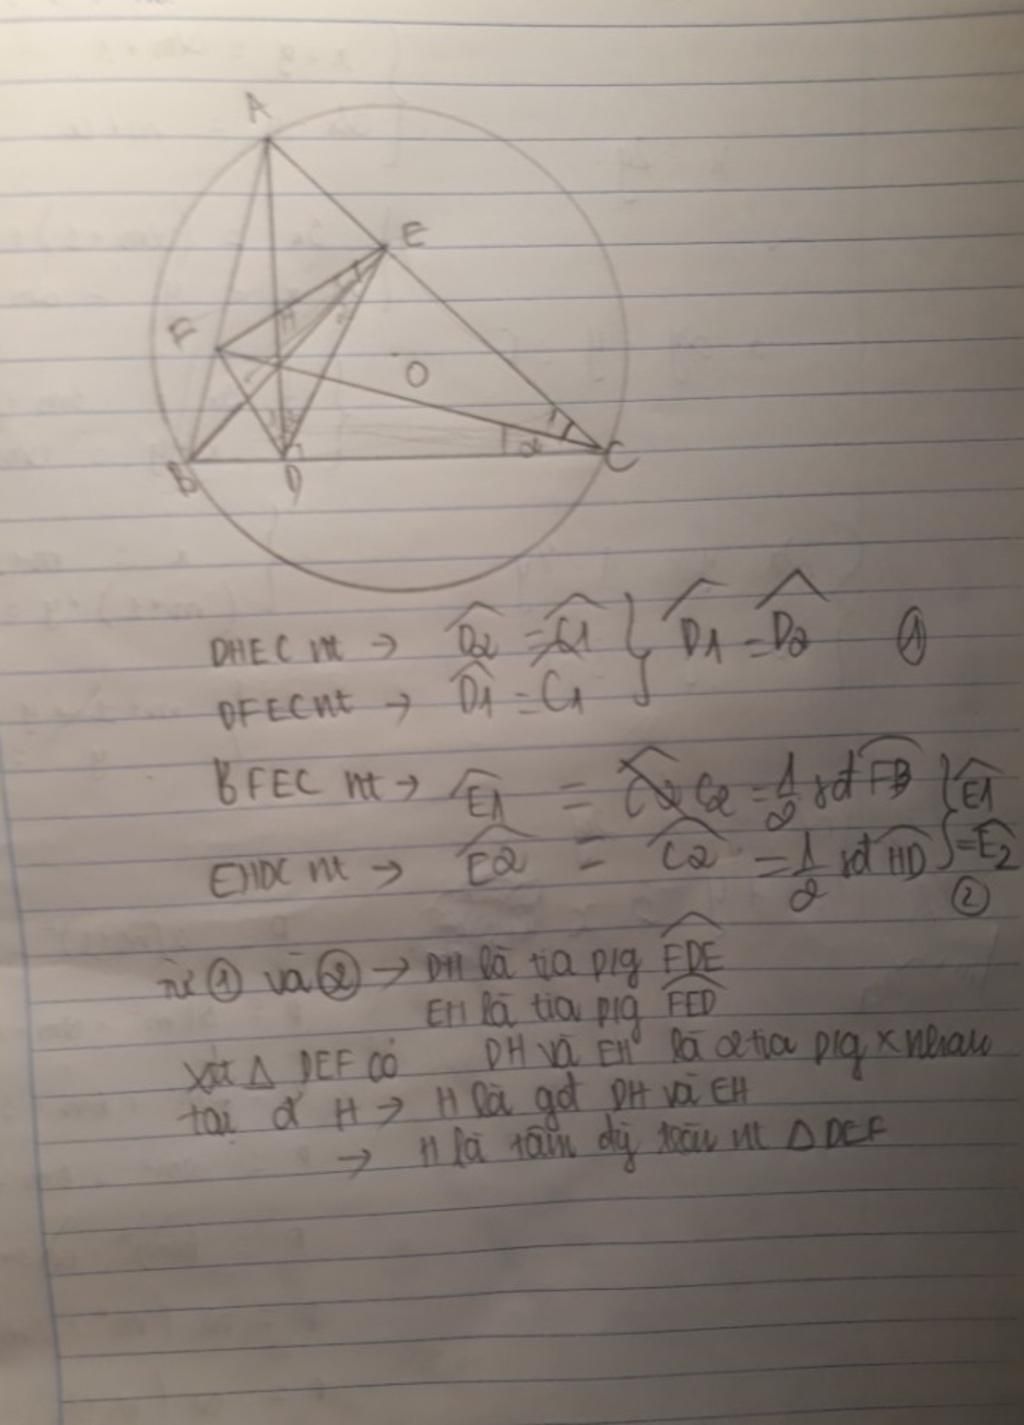 A
E
F
H
O
B
D
C
2
DHEC nt → D2 = C1 } D1 = D2 ①
DFEC nt → D1 = C1
BFEC nt → E1 = C2 = 1/2 sđ FB } E1
EHDC nt → E2 = C2 = 1/2 sđ HD } = E2
②
từ ① và ② → DH là tia p/g FDE
EH là tia p/g FED
Xét △ DEF có DH và EH là 2 tia p/g x nhau
tại đ' H → H là gđ DH và EH
→ H là tâm đg tròn nt △ DEF